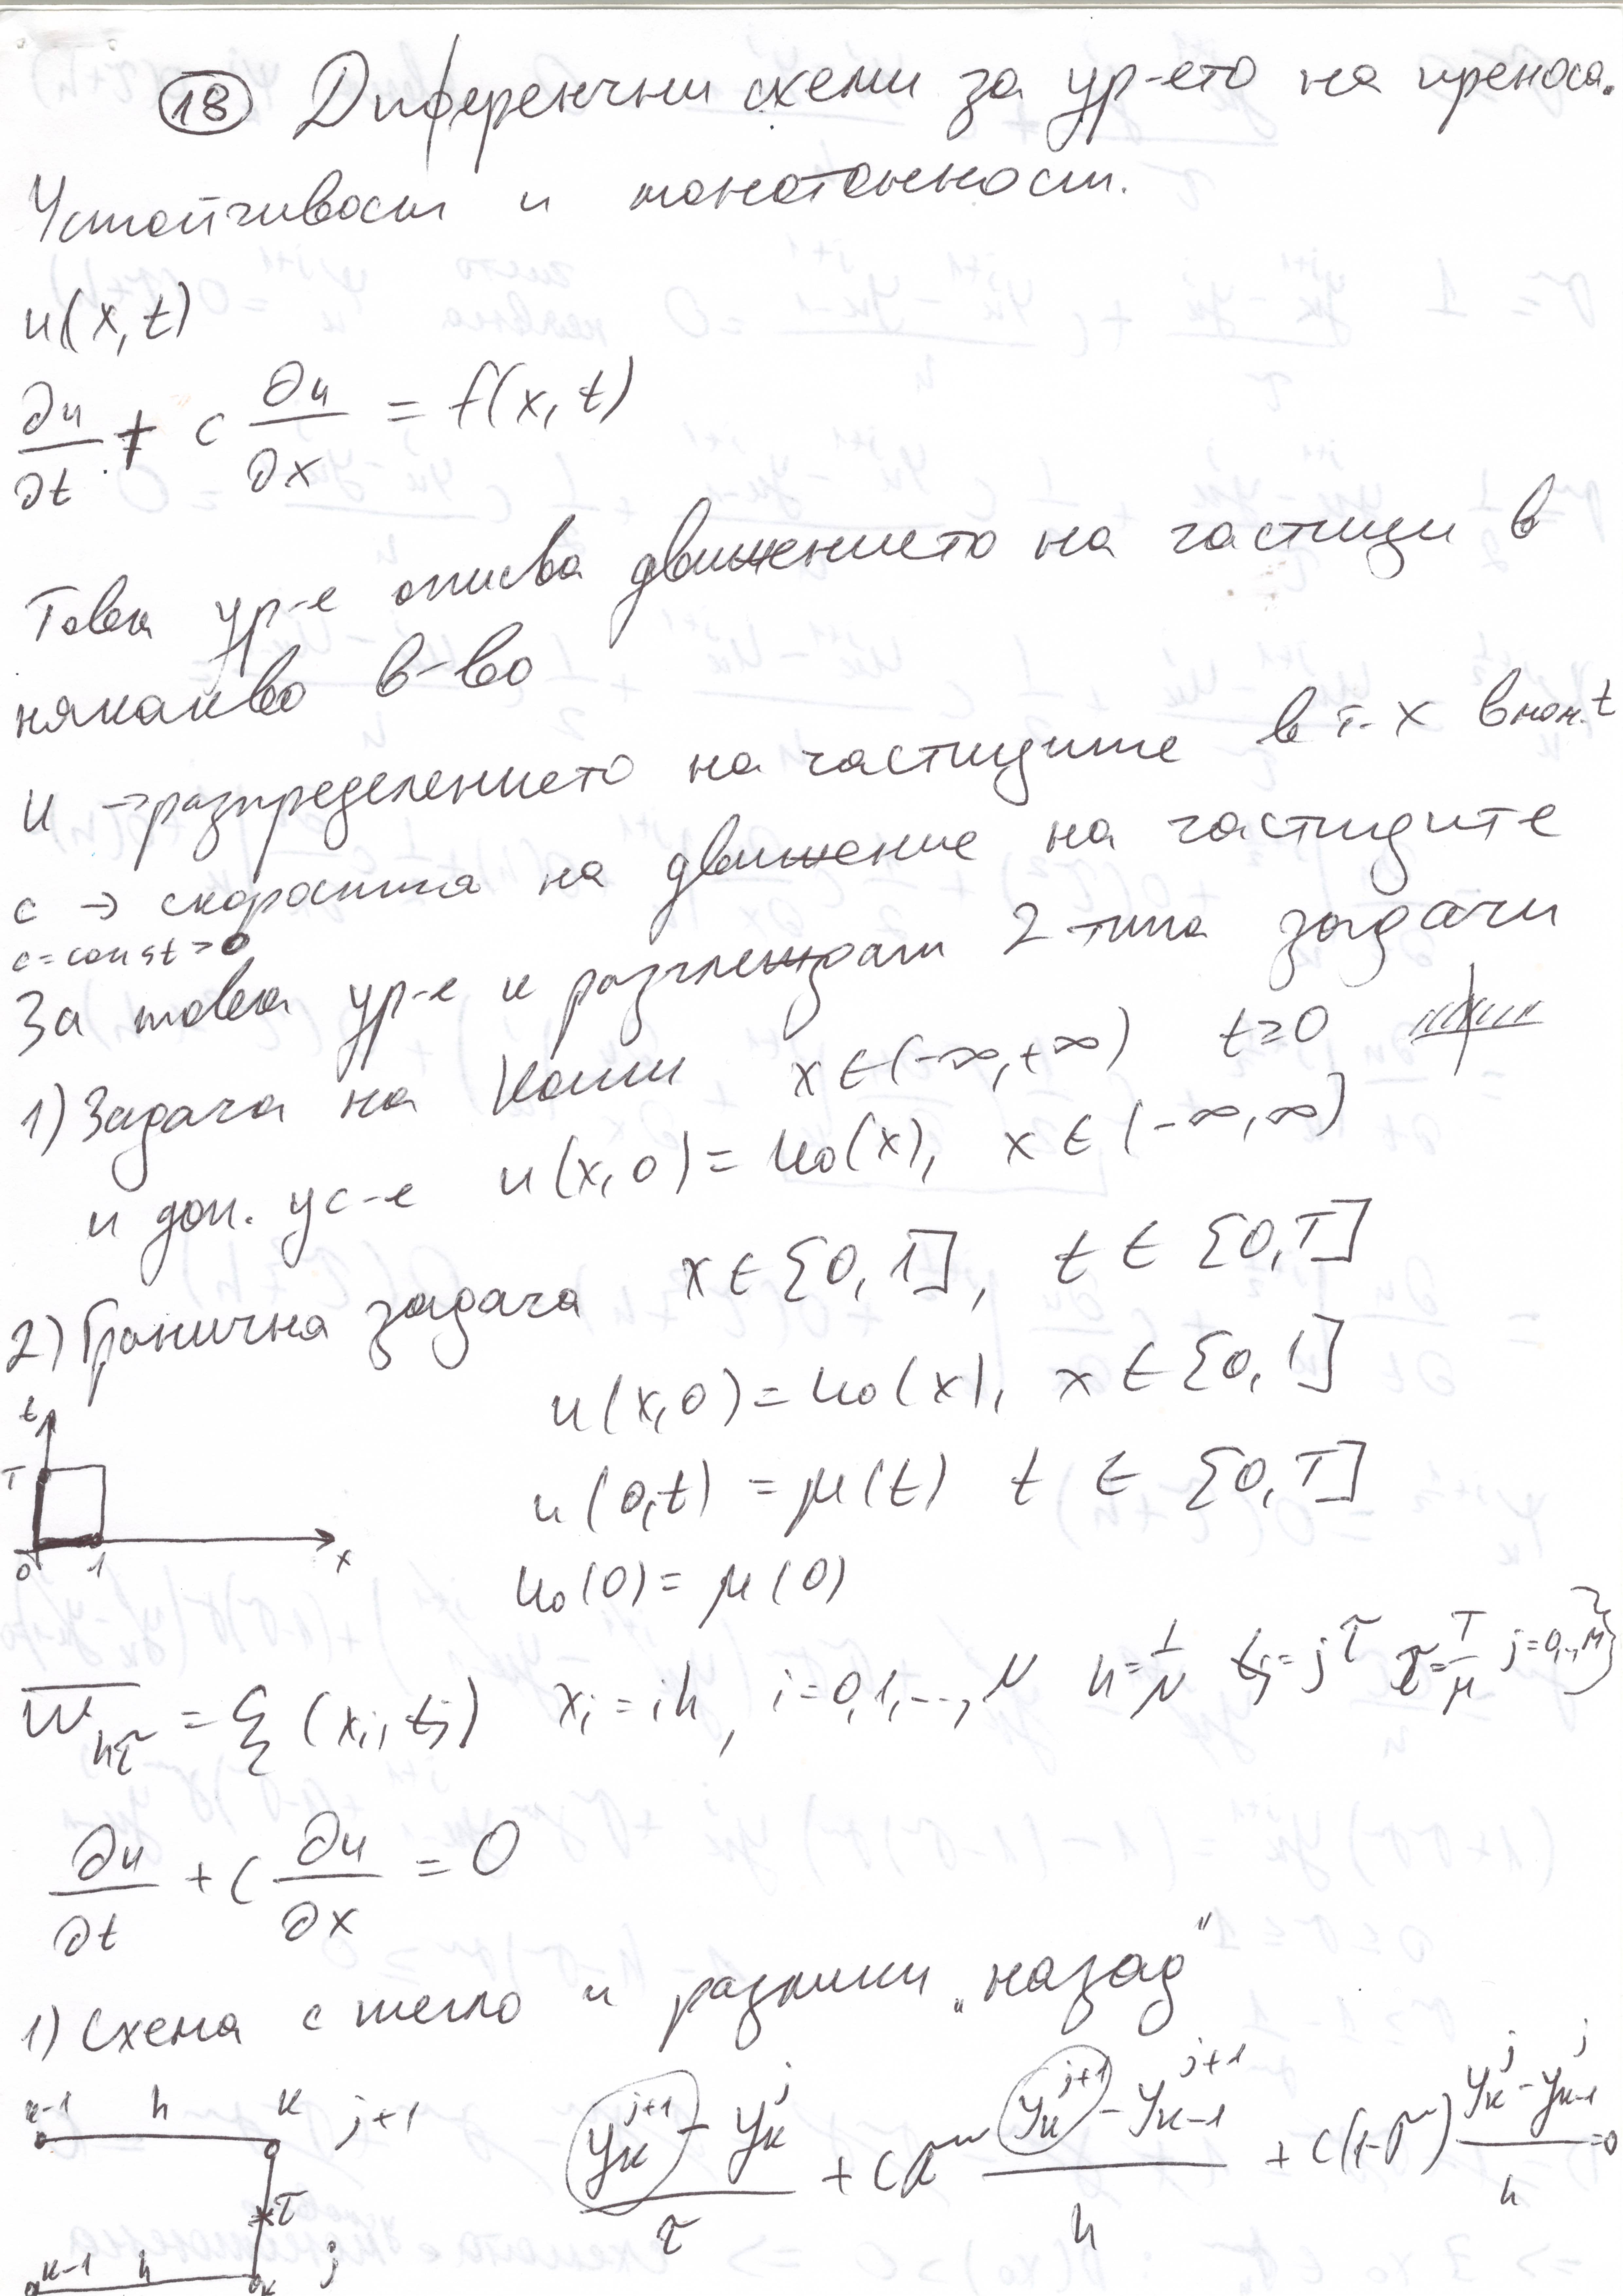 (18) Диференчни схеми за ур-ето на преноса.
Устойчивост и монотонност.
u(x,t)
∂u/∂t + c ∂u/∂x = f(x,t)
Това ур-е описва движението на частици в
някакво в-во
u → разпределението на частиците в т. x в мом. t
c → скоростта на движение на частиците
c = const > 0
За това ур-е и разглеждат 2 типа задачи
1) Задача на Коши x ∈ (-∞, +∞) t ≥ 0
и доп. ус-е u(x,0) = u₀(x), x ∈ (-∞, ∞)
2) Гранична задача x ∈ [0,1], t ∈ [0,T]
u(x,0) = u₀(x), x ∈ [0,1]
u(0,t) = μ(t) t ∈ [0,T]
u₀(0) = μ(0)
t
T
0 1 x
w̅_hτ = { (x_i, t_j) x_i = ih, i = 0,1,...,N h = 1/N t_j = jτ τ = T/M j = 0,..,M }
∂u/∂t + c ∂u/∂x = 0
1) Схема с тегло и разлики „назад"
k-1 h k j+1
τ
k-1 h k j
(y_k^{j+1} - y_k^j)/τ + cσ (y_k^{j+1} - y_{k-1}^{j+1})/h + c(1-σ) (y_k^j - y_{k-1}^j)/h = 0